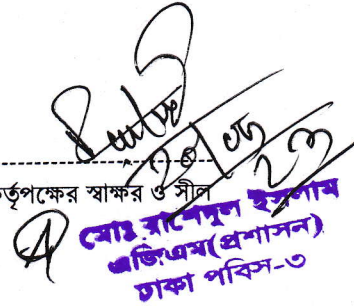 র্তৃপক্ষের স্বাক্ষর ও সীল
মোঃ রাশেদুল ইসলাম
এজিএম(প্রশাসন)
ঢাকা পবিস-৩